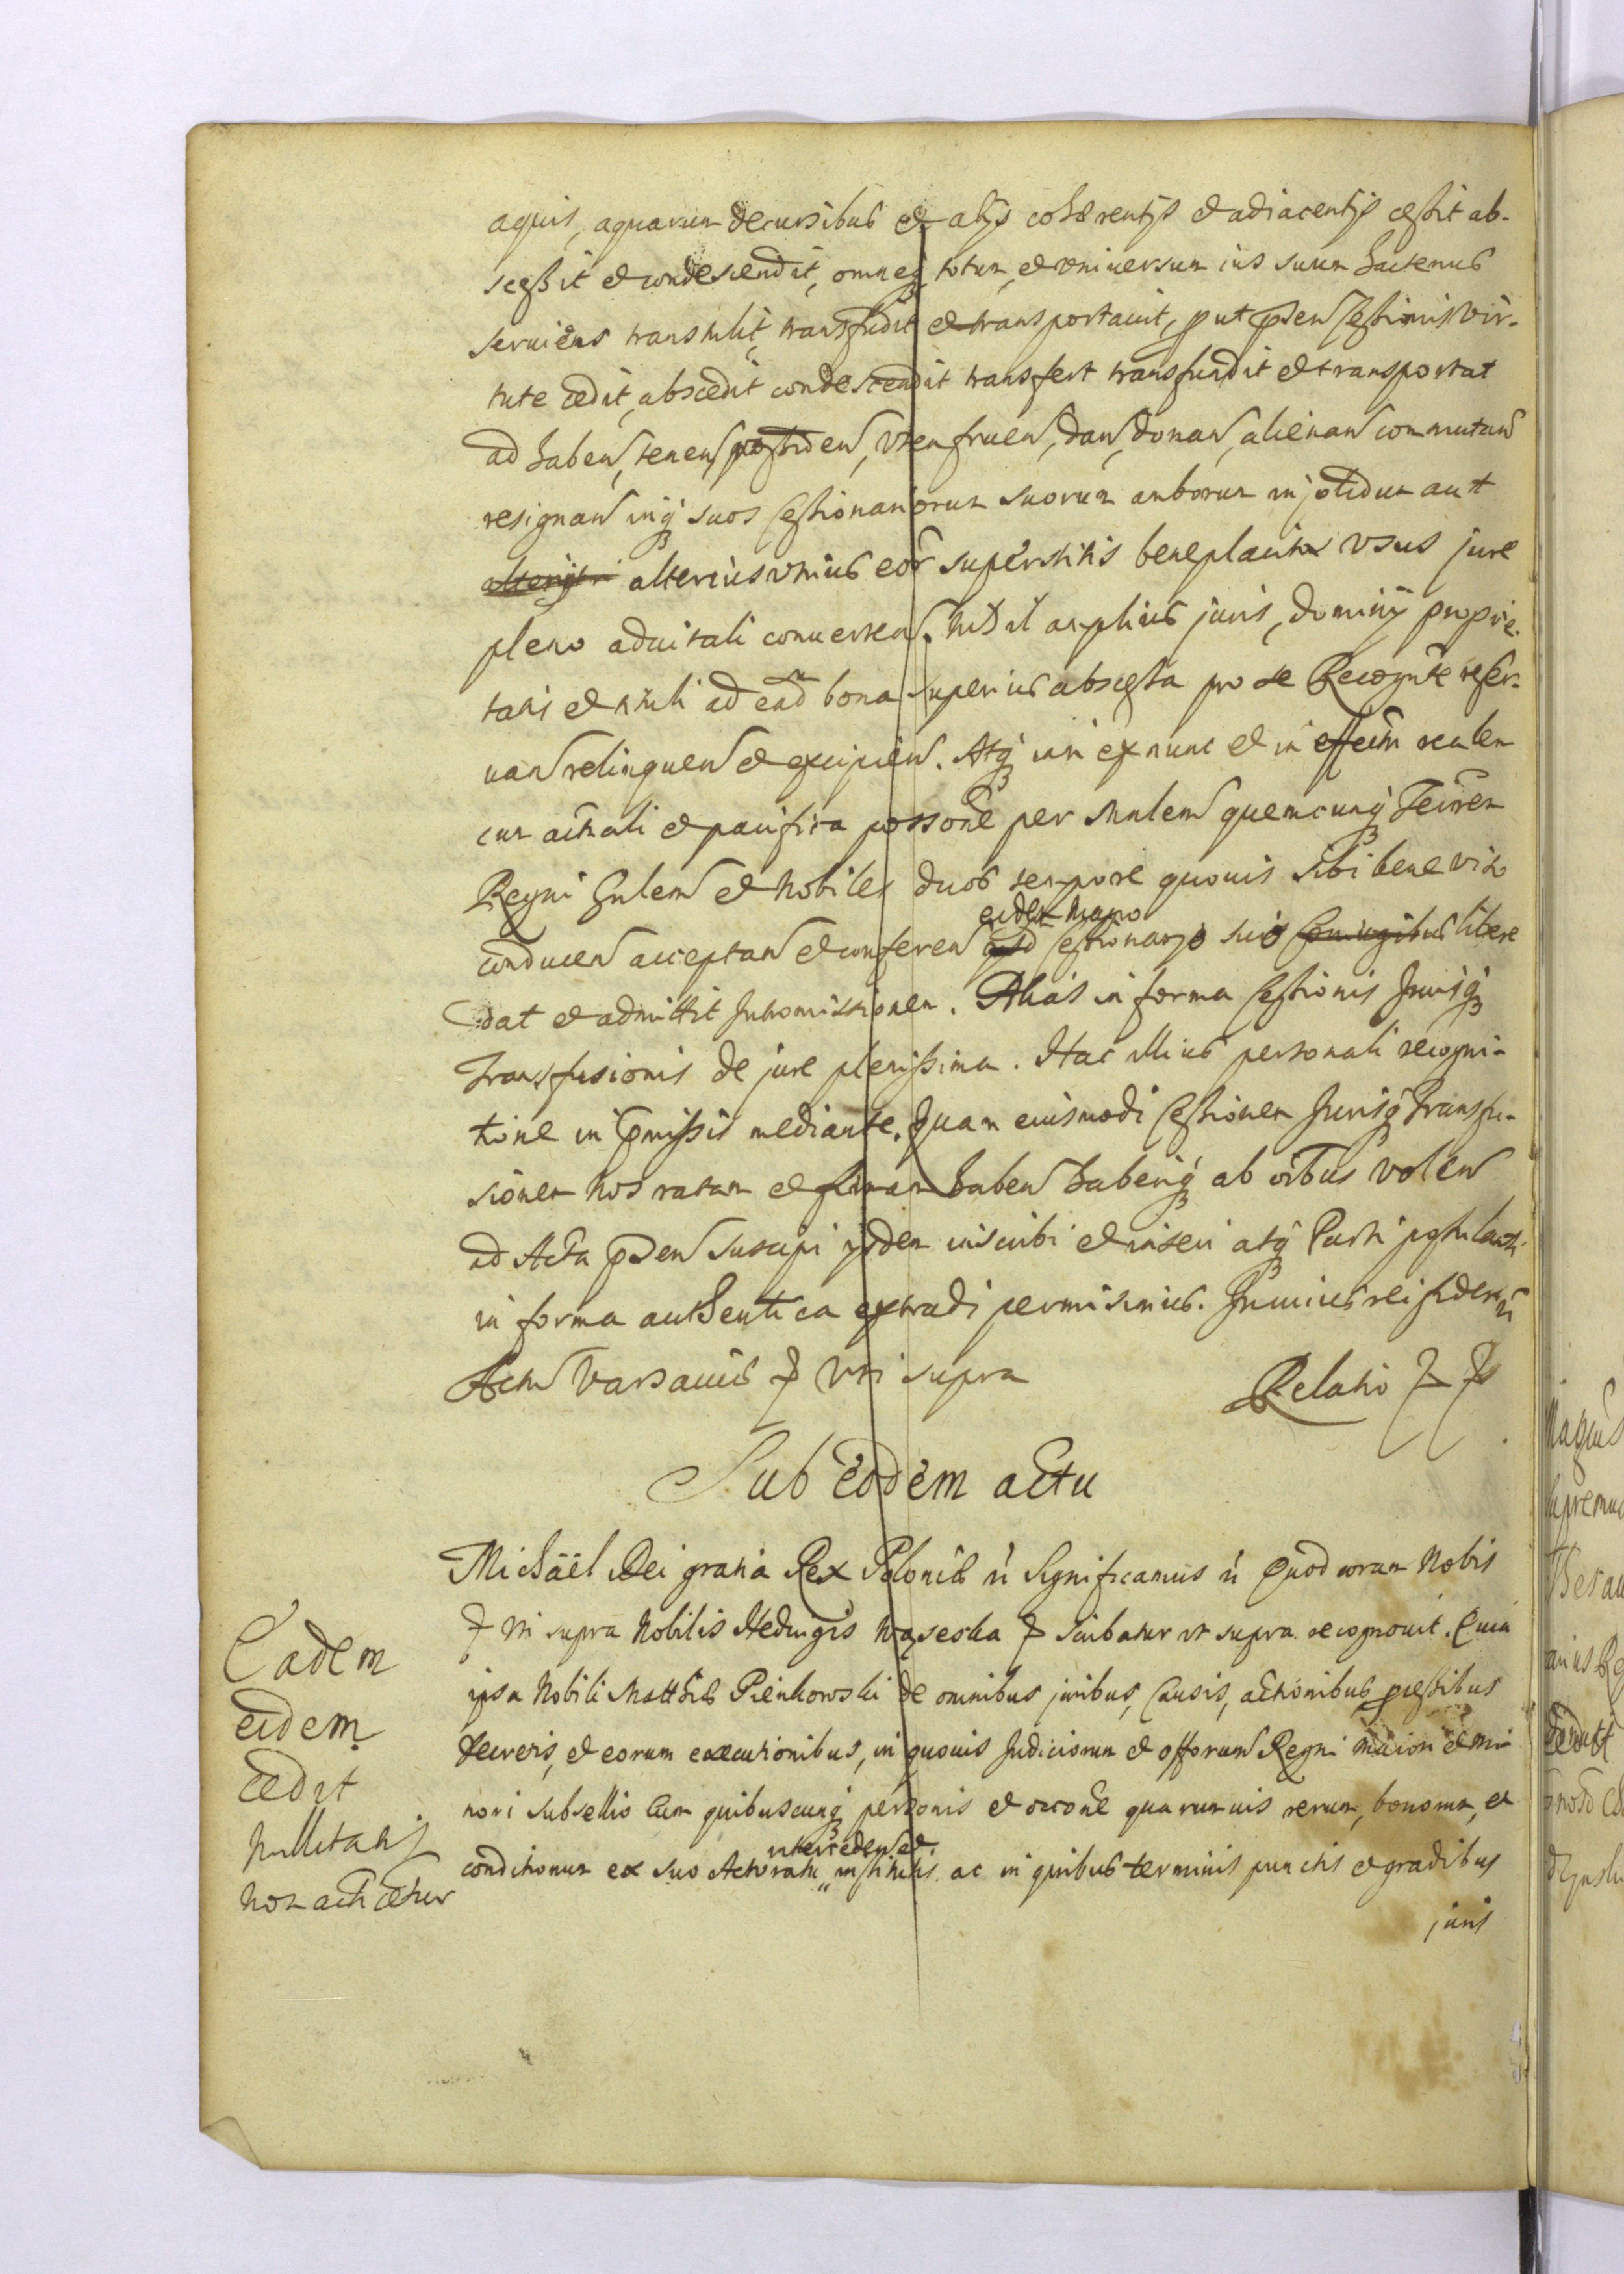 aquis, aquarum decursibus et alijs coherentijs et adiacentijs cessit ab-
scessit et condescendit, omneq totum, et vniuersum ius suum hactenus
seruiens transtulit, transfudit et transportauit, put pnsen Cessionis vir-
tute cedit, abscedit condescendit transfert transfundit et transportat
ad haben, tenen, possiden, vten fruen, dan, donan, alienan commutan
resignan inq suos Cessionariorum suorum amborum in solidum aut
alterius vnius eor superstitis beneplacitos vsus jure
pleno aduitali conuerten. Nihil amplius juris, dominij proprie-
tatis et tituli ad ead bona superius abscessa pro se Recognte reser-
uan relinquen et excipien. Atq iam ex nunc et in effectum realem
cum actuali et pacifica possone per Mnlem quemcunq Terrem
Regni Gnlem et Nobiles duos tempore quouis sibi bene viso
conducen acceptan et conferen Cessionario suo libere
eidem
dat et admittit Intromissionem. Alias in forma Cessionis Jurisq
Transfusionis de jure plenissima. Hac illius personali recogni-
tione in pmissis mediante. Quam eiusmodi Cessionem Jurisq Transfu-
sionem Nos ratam et firmam haben haberiq ab oibus volen
ad Acta pnsen suscipi ijsdem inscribi et inseri atq Parti postulanti
in forma authentica extradi permisimus. In cuius rei fidem
Actum Varsauiæ vti supra
Relatio
Sub eodem actu
Michaël Dei gratia Rex Poloniæ Significamus Quod coram Nobis
vti supra Nobilis Heduigis Wąsecka scribatur vt supra recognouit. Quia
ipsa Nobili Matthiæ Pieńkowski de omnibus juribus, Causis, actionibus, pcessibus
decretis, et eorum executionibus, in quouis Judiciorum et offorum Regni maiori et mi-
nori subsellio cum quibuscunq personis et occone quarumuis rerum, bonorum, et
conditionum ex suo Actoratu interceden et institutis ac in quibus terminis punctis et gradibus
juris
Eadem
eidem
cedit
non